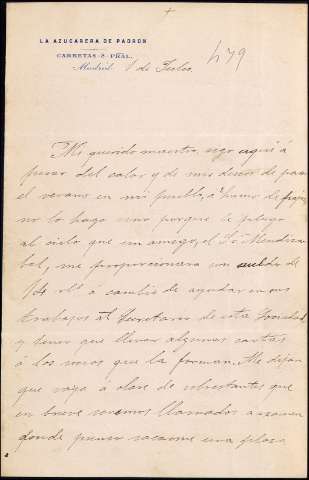 LA AZUCARERA DE PADRON
CARRETAS-8-PRAL.
Madrid 1 de Julio
479
Mi querido maestro, sigo aquí á
pesar del calor y de mis deseos de pasar
el verano en mi pueblo, á
no lo hago sino porque le plugo
al cielo que un amigo, el Sr Mendiza
bal, me proporcionara un sueldo de
14 á cambio de ayudar en sus
trabajos al Secretario de esta Sociedad
y tener que llevar algunas cartas
á los socios que la forman. Me dejan
que vaya á clase de que
en breve seremos llamados a examen
donde pienso sacarme una plaza